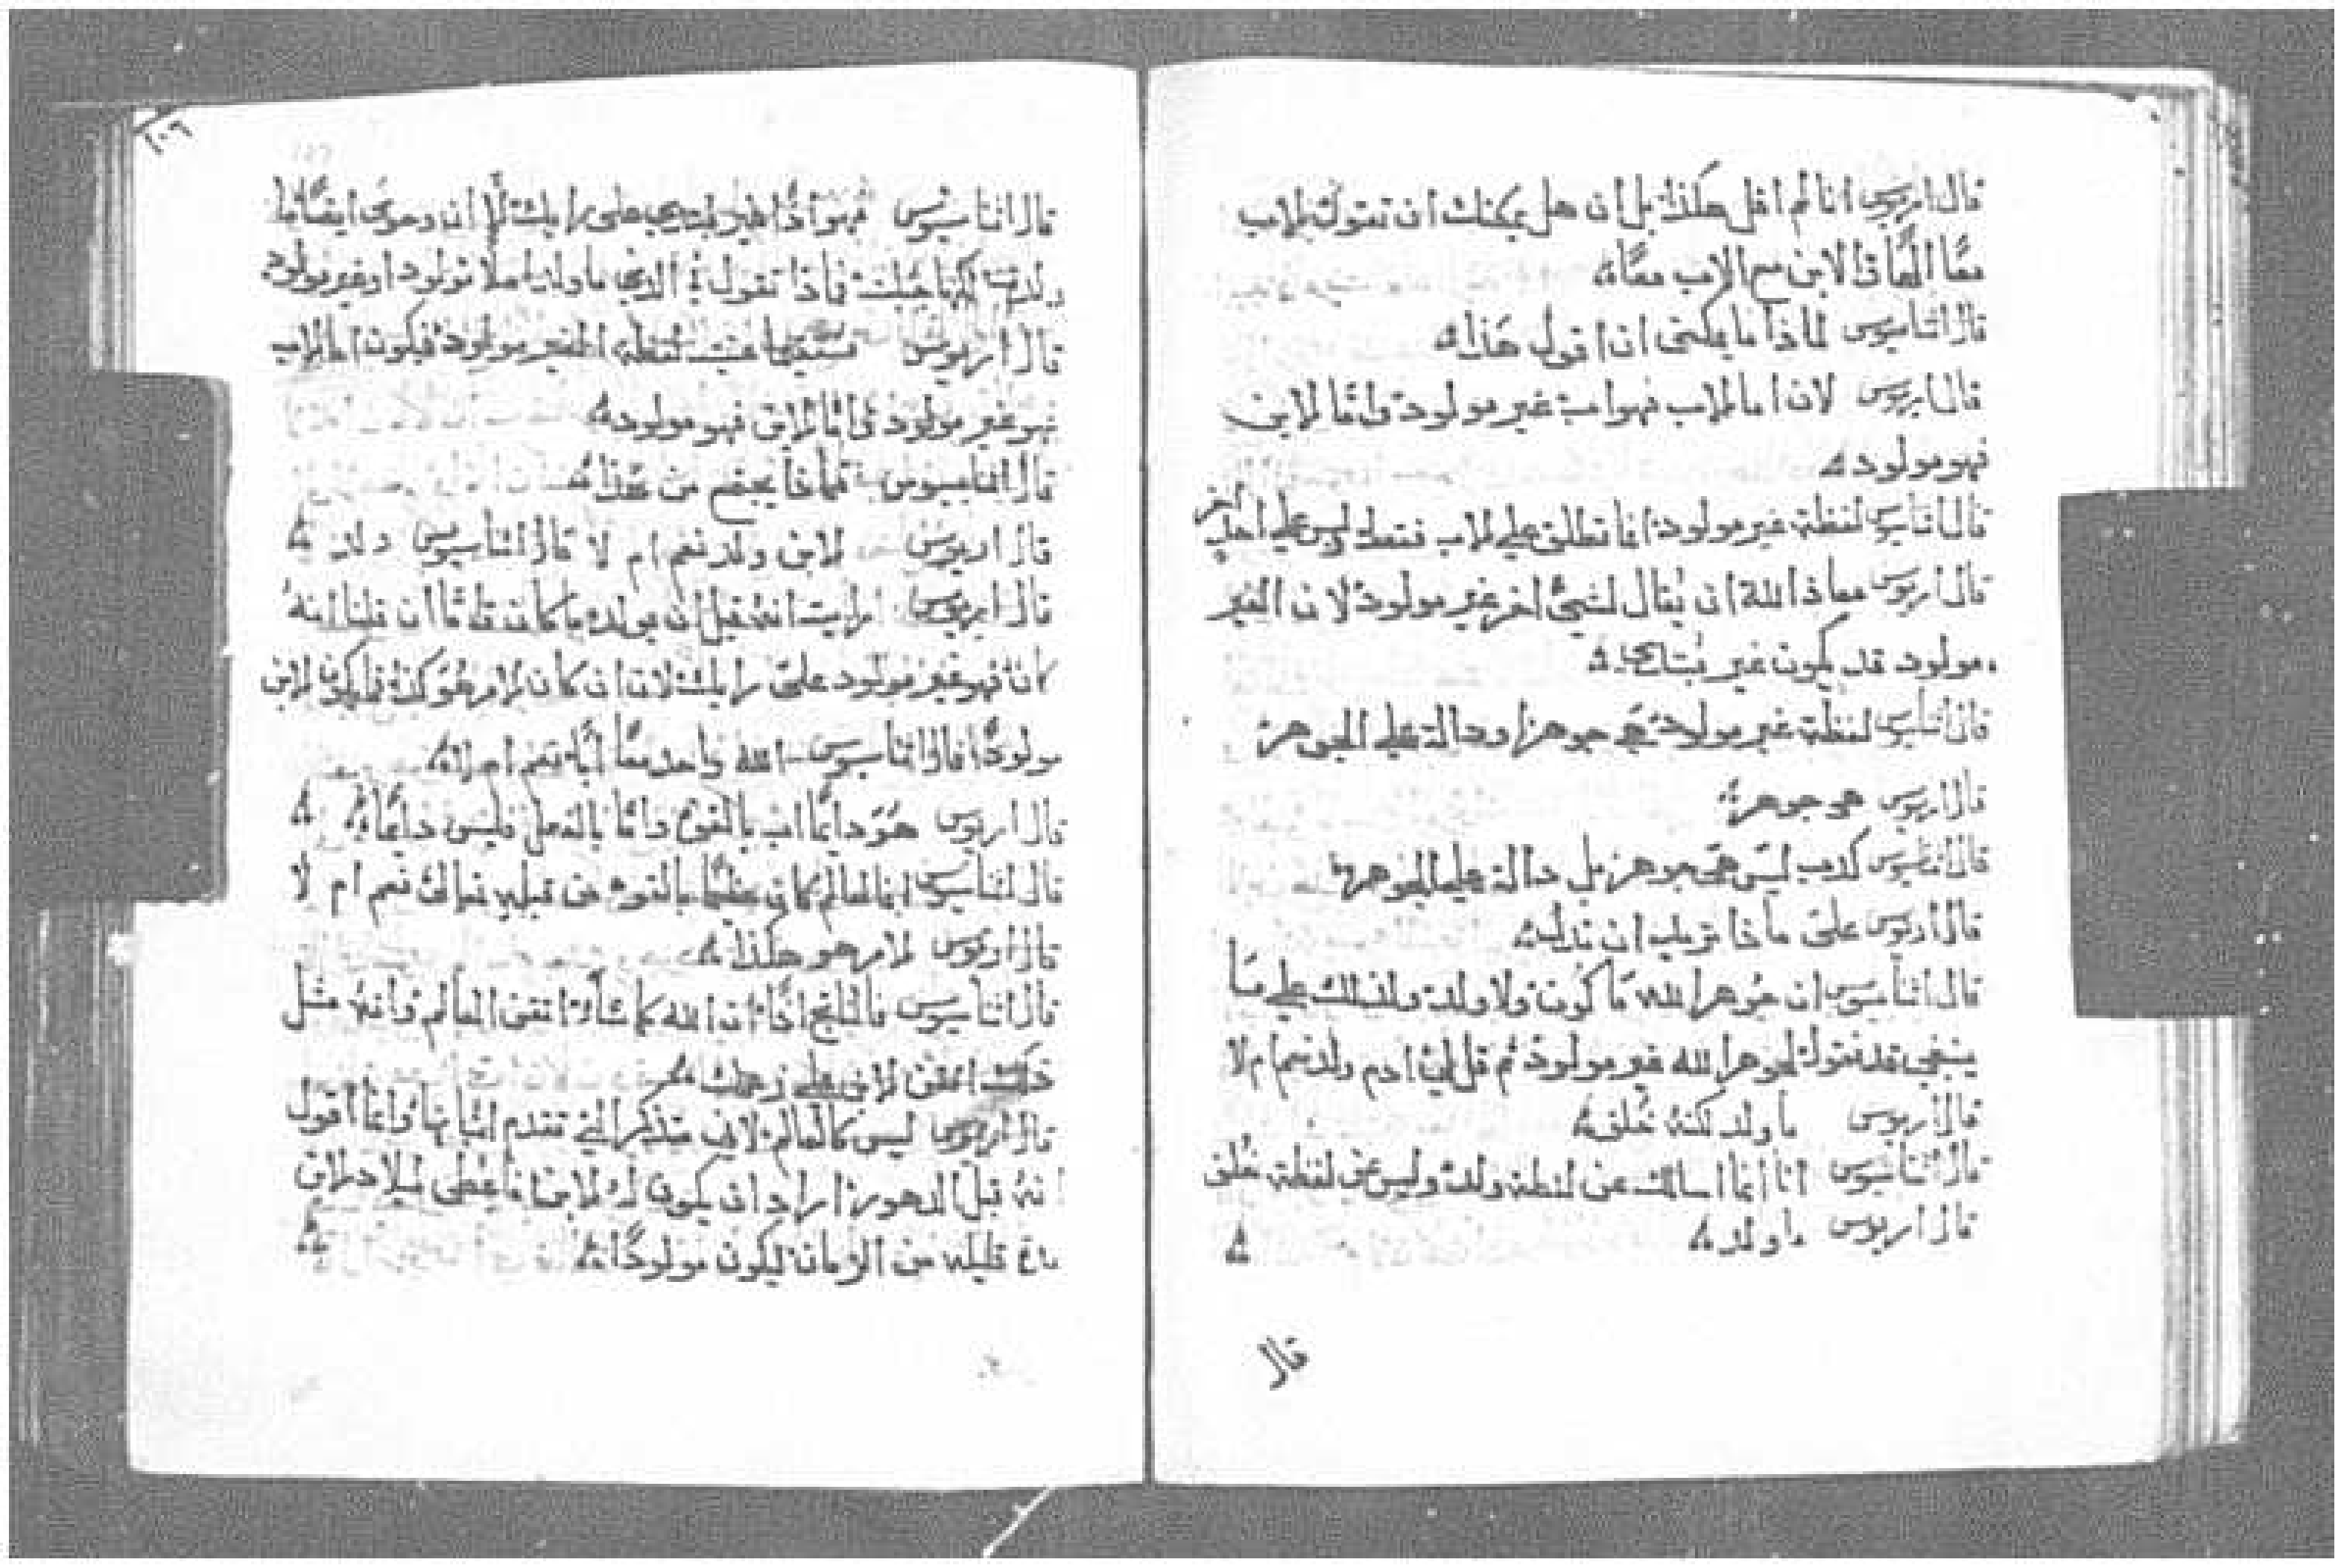 قال اريوس انا لم اقل هكذا بل ان هل يمكنك ان تقول للاب
معًا الهًا والابن مع الاب معًا
قال اثناسيوس لماذا ما يمكنى ان اقول هذا
قال اريوس لان اما الاب فهو اب غير مولود واما الابن
فهو مولود
قال اثناسيوس لفظة غير مولود انما تطلق على الاب فقط وليس على احدٍ اخر
قال اريوس معاذ الله ان يُقال لشيءٍ اخر غير مولود لان الغير
مولود قد يكون غير
قال اثناسيوس لفظة غير مولود هى جوهر او دالة على الجوهر
قال اريوس هو جوهر
قال اثناسيوس كذب ليس هى جوهر بل دالة على الجوهر
قال اريوس على ماذا تريد ان تدل
قال اثناسيوس ان جوهر الله ما كون ولا ولد ولذلك على ما
ينبغى قد نقول لجوهر الله غير مولود ثم قل لى ادم ولد نعم ام لا
قال اريوس ما ولد لكنه خُلق
قال اثناسيوس انا انما اسالك عن لفظة ولد وليس عن لفظة خُلق
قال اريوس ما ولد
قال
١٠٦
قال اثناسيوس فهو اذًا غير على رايك الا ان وحوى ايضًا ما
ولدت لكنها جبلت فماذا تقول فى الذى ما ولد اصلًا مولود او غير مولود
قال اريوس لفظة الغير مولود فيكون اما الاب
فهو غير مولود واما الابن فهو مولود
قال اثناسيوس فماذا يجتمع من هذا
قال اريوس الابن ولد نعم ام لا قال اثناسيوس ولد
قال اريوس ارايت انه قبل ان يولد ما كان واما ان قلنا انهُ
كان فهو غير مولود على رايك لان ان كان الامر هو كذا فما يكون الابن
مولودًا قال اثناسيوس الله واحد معًا ابًا نعم ام لا
قال اريوس هو دايمًا اب بالقوة واما بالفعل فليس دايمًا
قال اثناسيوس العالم كان بالقوة من قبله تعالى نعم ام لا
قال اريوس الامر هو هكذا
قال اثناسيوس فالناتج اذًا ان الله كما شاء اتقن العالم وانه مثل
ذلك اتقن الابن على زعمك
قال اريوس ليس كالعالم لانى متذكر التى تقدم اثباتها وانما اقول
انه قبل الدهور اراد ان يكون له الابن فاعطى ميلاد الابن
قليله من الزمان ليكون مولودًا